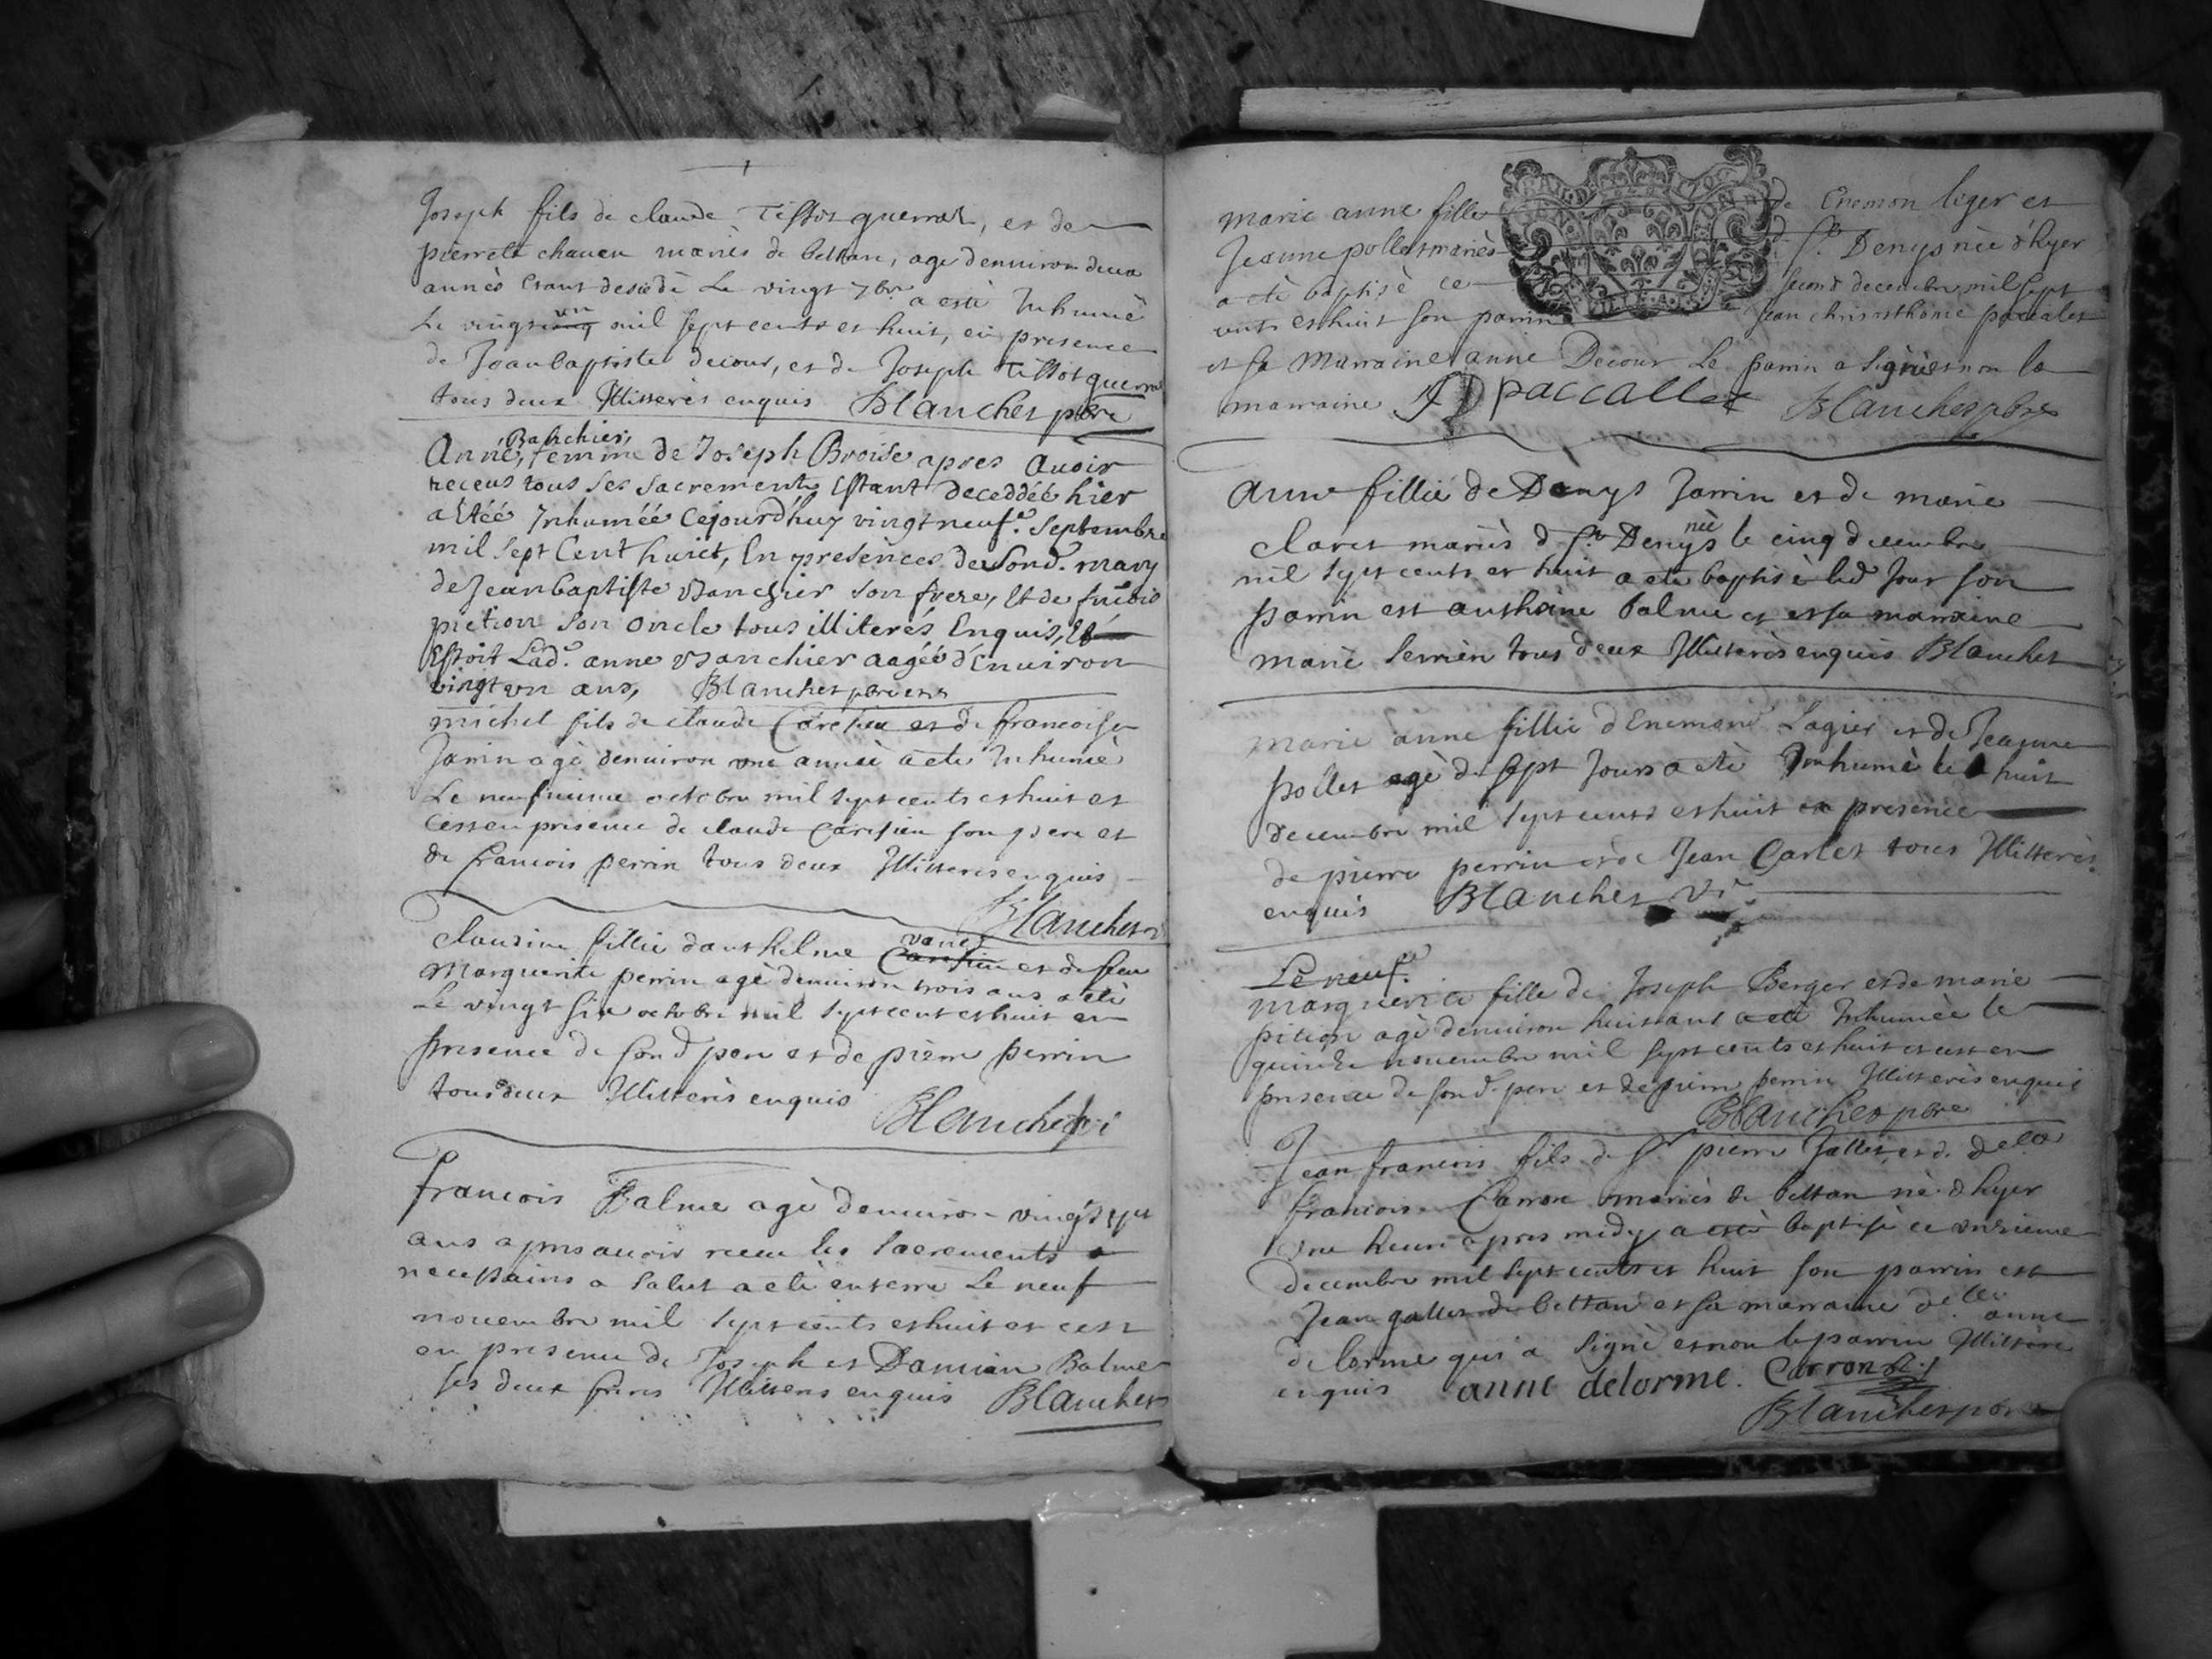 Joseph fils de claude Tissot guerraz, et de
pierrete chaueu mariès de bettan, agè denuiron deux
annèes estant decedè Le vingt 7bre a estè Inhumè
Le vingt un mil sept cents et huit, en presence
de Jean baptiste decour, et de Joseph Tissot guerraz
tous deux Illitterès enquis Blanchet pbre
Anne Banchier, femme de Joseph Broise apres Auoir
receus tous ses sacrements Estant deceddéé hier
a Etéé Inhuméé Cejourd'huy vingt neufe. Septembre
mil Sept Cent huict, En presences de Sond. mary
de Jean baptiste Banchier son frere, Et de
pietion son oncle tous illiterés Enquis, Et
Estoit Lade. anne Banchier aagéé d'Enuiron
vingt vn ans, Blanchet
michel fils de claude Caresieu et de francoise
Jarrin agè denuiron vne annèè a etè Inhumè
Le neufuieme octobre mil sept cents et huit et
cest en presence de claude Caresieu son pere et
de francois perrin tous deux Illitteres enquis
Blanchet
claudine fillie d'anthelme et de feu
Marguerite perrin agè denuiron trois ans a etè
Le vingt six octobre mil sept cent et huit en
presence de sond pere et de pierre perrin
tous deux Illitterès enquis
Blanchet vi
francois Balme agè denuiron vingt sept
ans apres auoir receu les sacrements
necessaires a salut a etè enterrè Le neuf
nouembre mil sept cents et huit et cest
en presence de Joseph et Damian Balme
ses deux freres Illitteres enquis Blanchet
marie anne fille de Enemon leger et
Jeanne pollet mariès d St. Denys nèe d'hyer
a etè baptisè ce second decembre mil sept
cents et huit son parrin Jean
et sa Marraine anne Decour Le parrin a signè et non la
marraine paccallet Blanchet pbre
anne fillie de Denys Jarrin et de marie
claret mariès d St. Denys nèe le cinq decembre
mil sept cents et huit a ete baptisè led Jour son
parrin est anthoine balme et et sa marraine
marie tous deux Illitterès enquis Blanchet
marie anne fillie d'Enemond Lagier et de Jeanne
pollet agè de sept Jours a etè Inhumè le huit
decembre mil sept cents et huit en presence
de pierre perrin et de Jean Carlet tous Illitterès
enquis Blanchet Vi
Le neufe
marguerite fille de Joseph Berger et de marie
pition agè denuiron huit ans a etè Inhumèe le
quinze nouembre mil sept cents et huit et cest en
presence de sond. pere et de pierre perrin Illitterès enquis
Blanchet pbre
Jean francois fils de Sr pierre Jallet, et d. delle
francoise Carron mariès de bettan nè d'hyer
vne heure apres midy a estè baptisè ce vnzieme
decembre mil sept cents et huit son parrin est
Jean gallet de bettan et sa marraine delle anne
delorme qui a signè et non le parrin Illittere
enquis anne delorme. Carron
Blanchet pbre